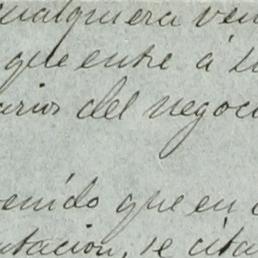 cualquiera ven
que entre á s
arios del negoci
venido que en c
utacion, se cita